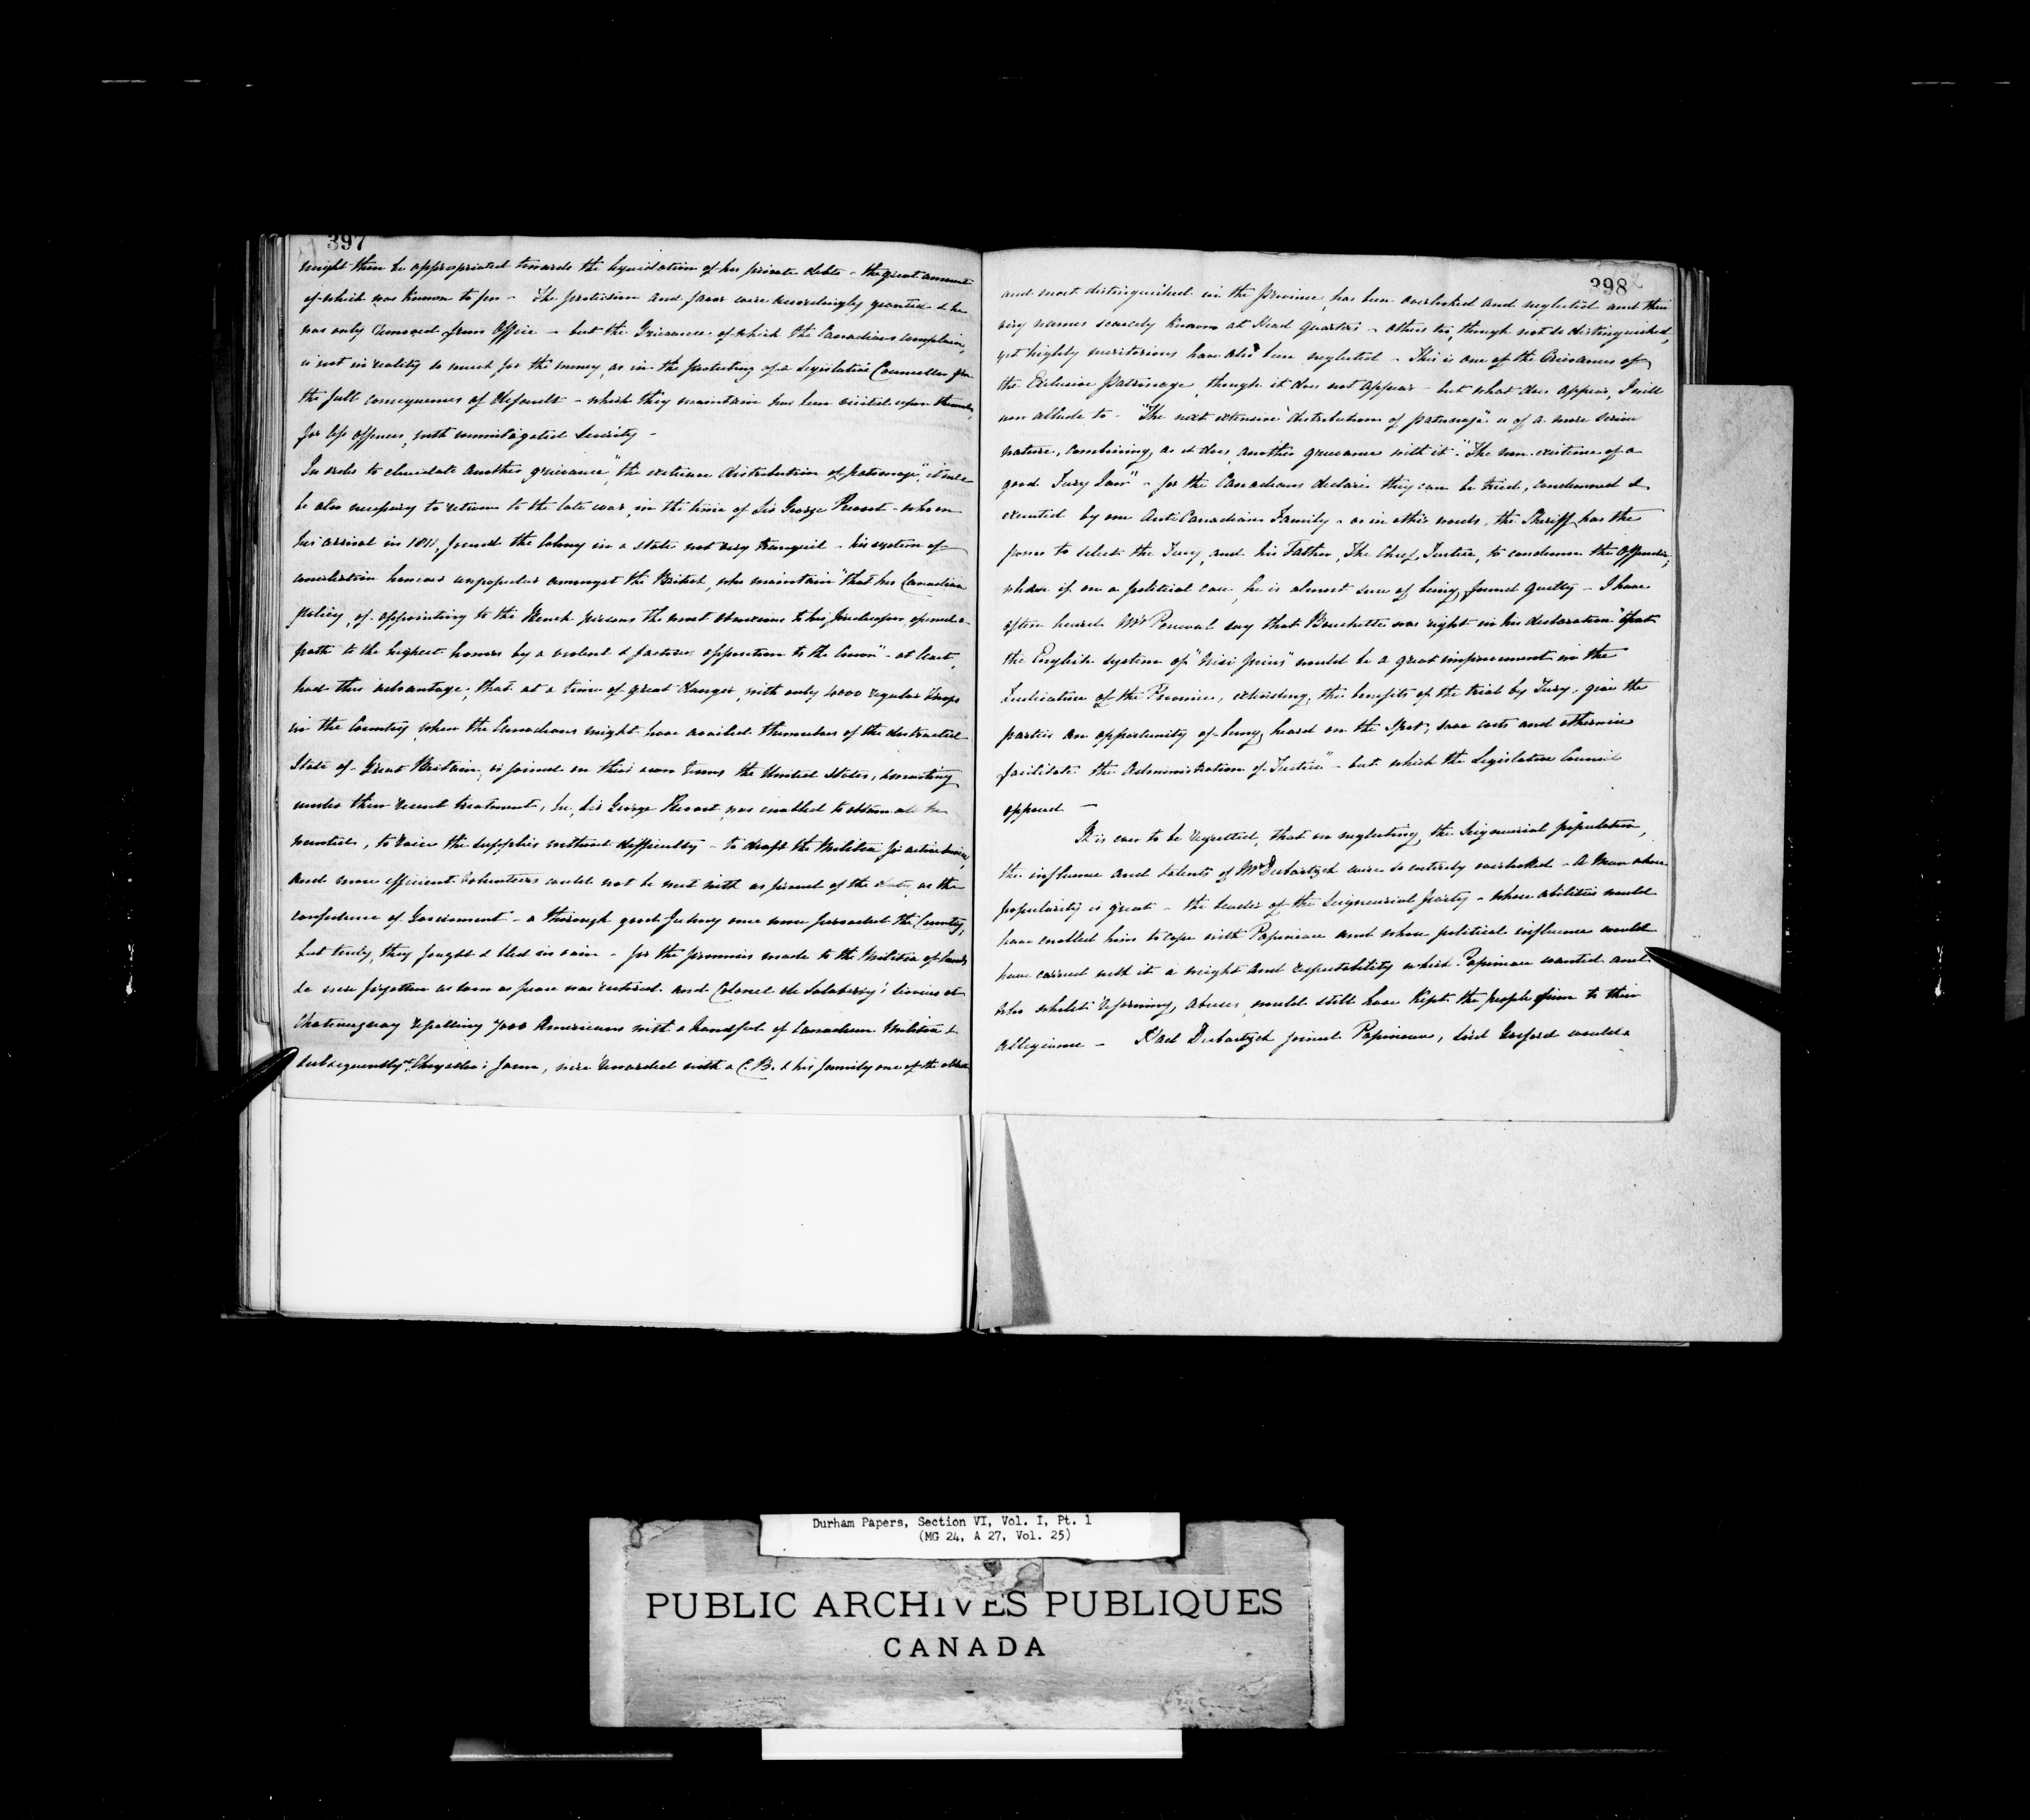 397
might then be appropriated towards the liquidation of his private debts - the great amount
of which was known to few - The protection and favor were accordingly granted & he
was only removed from Office - but the Grievance of which the Canadians complain,
is not in reality so much for the money, as in the protecting of a Legislative Councillor from
the full consequences of Default - which they maintain has been visited upon themselves,
for less offences, with unmitigated Severity -
In order to elucidate another grievance "the exclusive distribution of patronage", it will
be also necessary to return to the late war, in the time of Sir George Prevost - who on
his arrival in 1811, found the Colony in a state not very tranquil - his system of
conciliation however unpopular amongst the British, who maintain "that his Canadian
policy, of appointing to the Bench persons the most obnoxious to his predecessor, opened a
path to the highest honors by a violent & factious opposition to the Crown" - at least,
had this advantage; that at a time of great danger, with only 4000 regular Troops
in the Country, when the Canadians might have availed themselves of the distracted
State of Great Britain, or joined on their own terms the United States, smarting
under their recent treatment, he, Sir George Prevost was enabled to obtain all he
wanted, to raise the supplies without difficulty - to draft the Militia for active service,
and more efficient Volunteers could not be met with as proud of the as the
confidence of Government - a thorough good feeling once more pervaded the Country,
but truly, they fought & bled in vain - for the promises made to the Militia of lands
&c were forgotten as soon as peace was restored. and Colonel de Salaberry's services at
Chateauguay repelling 7000 Americans with a handful of Canadian Militia &
subsequently at Chrysler's farm, were rewarded with a C.B. & his family one of the oldest
398
and most distinguished in the province, has been overlooked and neglected and their
very names scarcely known at Head Quarters - others too, though not so distinguished,
yet highly meritorious have also been neglected - This is one of the Grievances of
the Exclusive Patronage, though it does not appear - but what does appear, I will
now allude to - "The next extensive distribution of patronage" is of a more serious
nature, combining, as it does, another grievance with it - "The non-existence of a
good Jury Law" - for the Canadians declare they can be tried, condemned &
executed by one AntiCanadian Family - or in other words, the Sheriff has the
power to select the Jury, and his Father, The Chief Justice, to condemn the Offender,
whom if on a political case, he is almost sure of being found guilty - I have
often heard Mr Perceval say that Bouchette was right in his declaration "that
the English system of "Nisi prius" would be a great improvement in the
Judicature of the Province, extending, the benefits of the trial by Jury, give the
parties an opportunity of being heard on the Spot, save costs and otherwise
facilitate the Administration of Justice" - but which the Legislative Council
opposed -
It is ever to be regretted, that in neglecting the Seigneurial population,
the influence and talents of Mr Debartzch were so entirely overlooked - A Man whose
popularity is great - the leader of the Seigneurial party - whose abilities would
have enabled him to cope with Papineau and whose political influence would
have carried with it a weight and respectability which Papineau wanted and
who whilst reforming, abuses, would still have kept the people firm to their
allegiance - Had Debartzch joined Papineau, Lord Gosford would
Durham Papers, Section VI, Vol. I, Pt. 1
(MG 24, A 27, Vol. 25)
PUBLIC ARCHIVES PUBLIQUES
CANADA